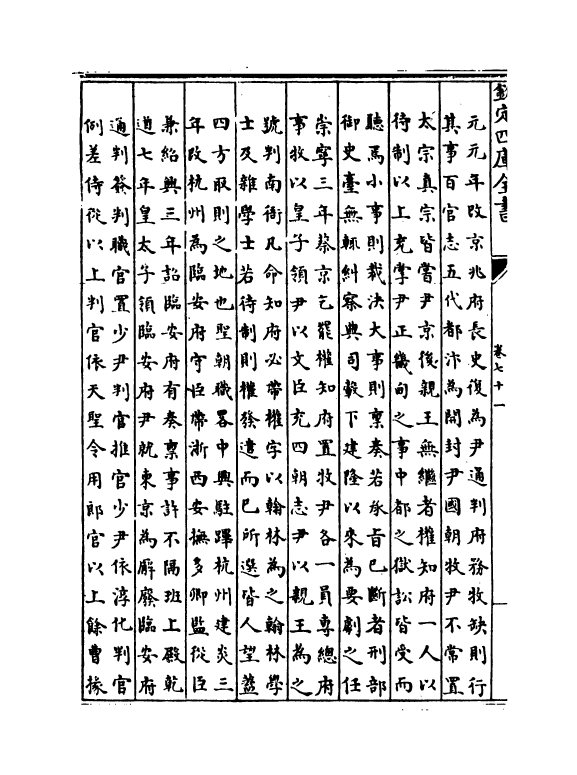 欽定四庫全書
卷七十一
元元年改京兆府長史復為尹通判府務牧缺則行
其事百官志五代都汴為開封尹國朝牧尹不常置
太宗真宗皆嘗尹京後親王無繼者權知府一人以
待制以上充掌尹正畿甸之事中都之獄訟皆受而
聽焉小事則裁決大事則稟奏若承旨已斷者刑部
御史臺無輒糾察典司轂下建隆以來為要劇之任
崇寧三年蔡京乞罷權知府置牧尹各一員專總府
事牧以皇子領尹以文臣充四朝志尹以親王為之
號判南衙凡命知府必帶權字以翰林為之翰林學
士及雜學士若待制則權發遣而已所選皆人望蓋
四方取則之地也聖朝職畧中興駐蹕杭州建炎三
年改杭州為臨安府守臣帶浙西安撫多卿監從臣
兼紹興三年詔臨安府有奏稟事許不隔班上殿乾
道七年皇太子領臨安府尹就東京為廨廢臨安府
通判簽判職官置少尹判官推官少尹依淳化判官
例差侍從以上判官依天聖令用郎官以上餘曹掾